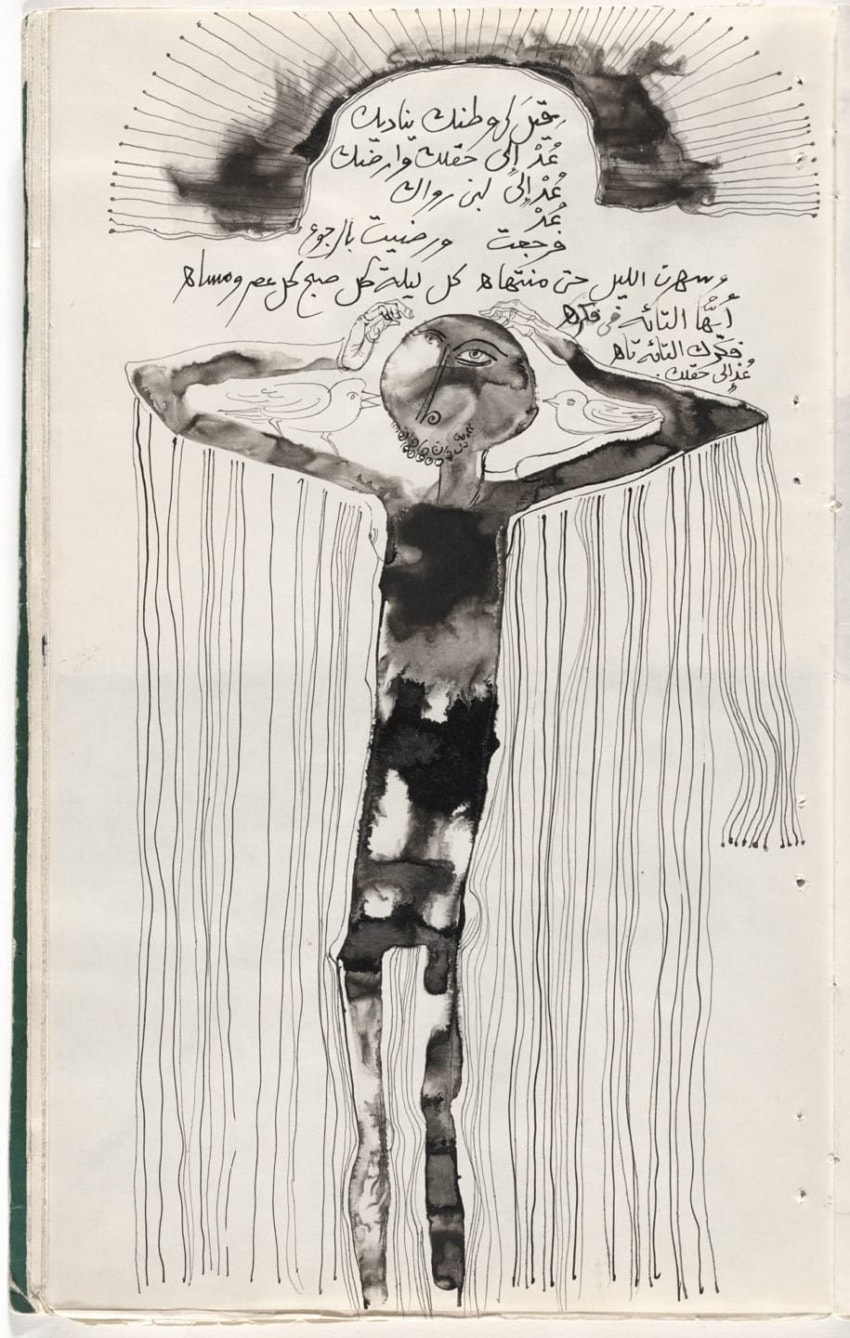 قيل له وطنك يناديك
عُدْ إلى حقلك وارضك
عُدْ إلى لبن رواك
عُدْ
فرجعت ورضيت بالرجوع
وسهرت الليل حتى منتهاه كل ليلة كل صبح كل عصر ومساه
أيُّها التائه فى فكره
فكرك التائه تاه
عُدْ إلى حقلك.